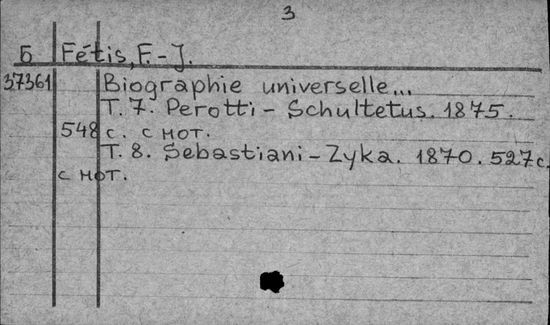 3
Б Fétis, F.-J.
37361 Biographie universelle...
T. 7. Perotti - Schultetus. 1875.
548 с. с нот.
T. 8. Sebastiani - Zyka. 1870. 527 с.
с нот.